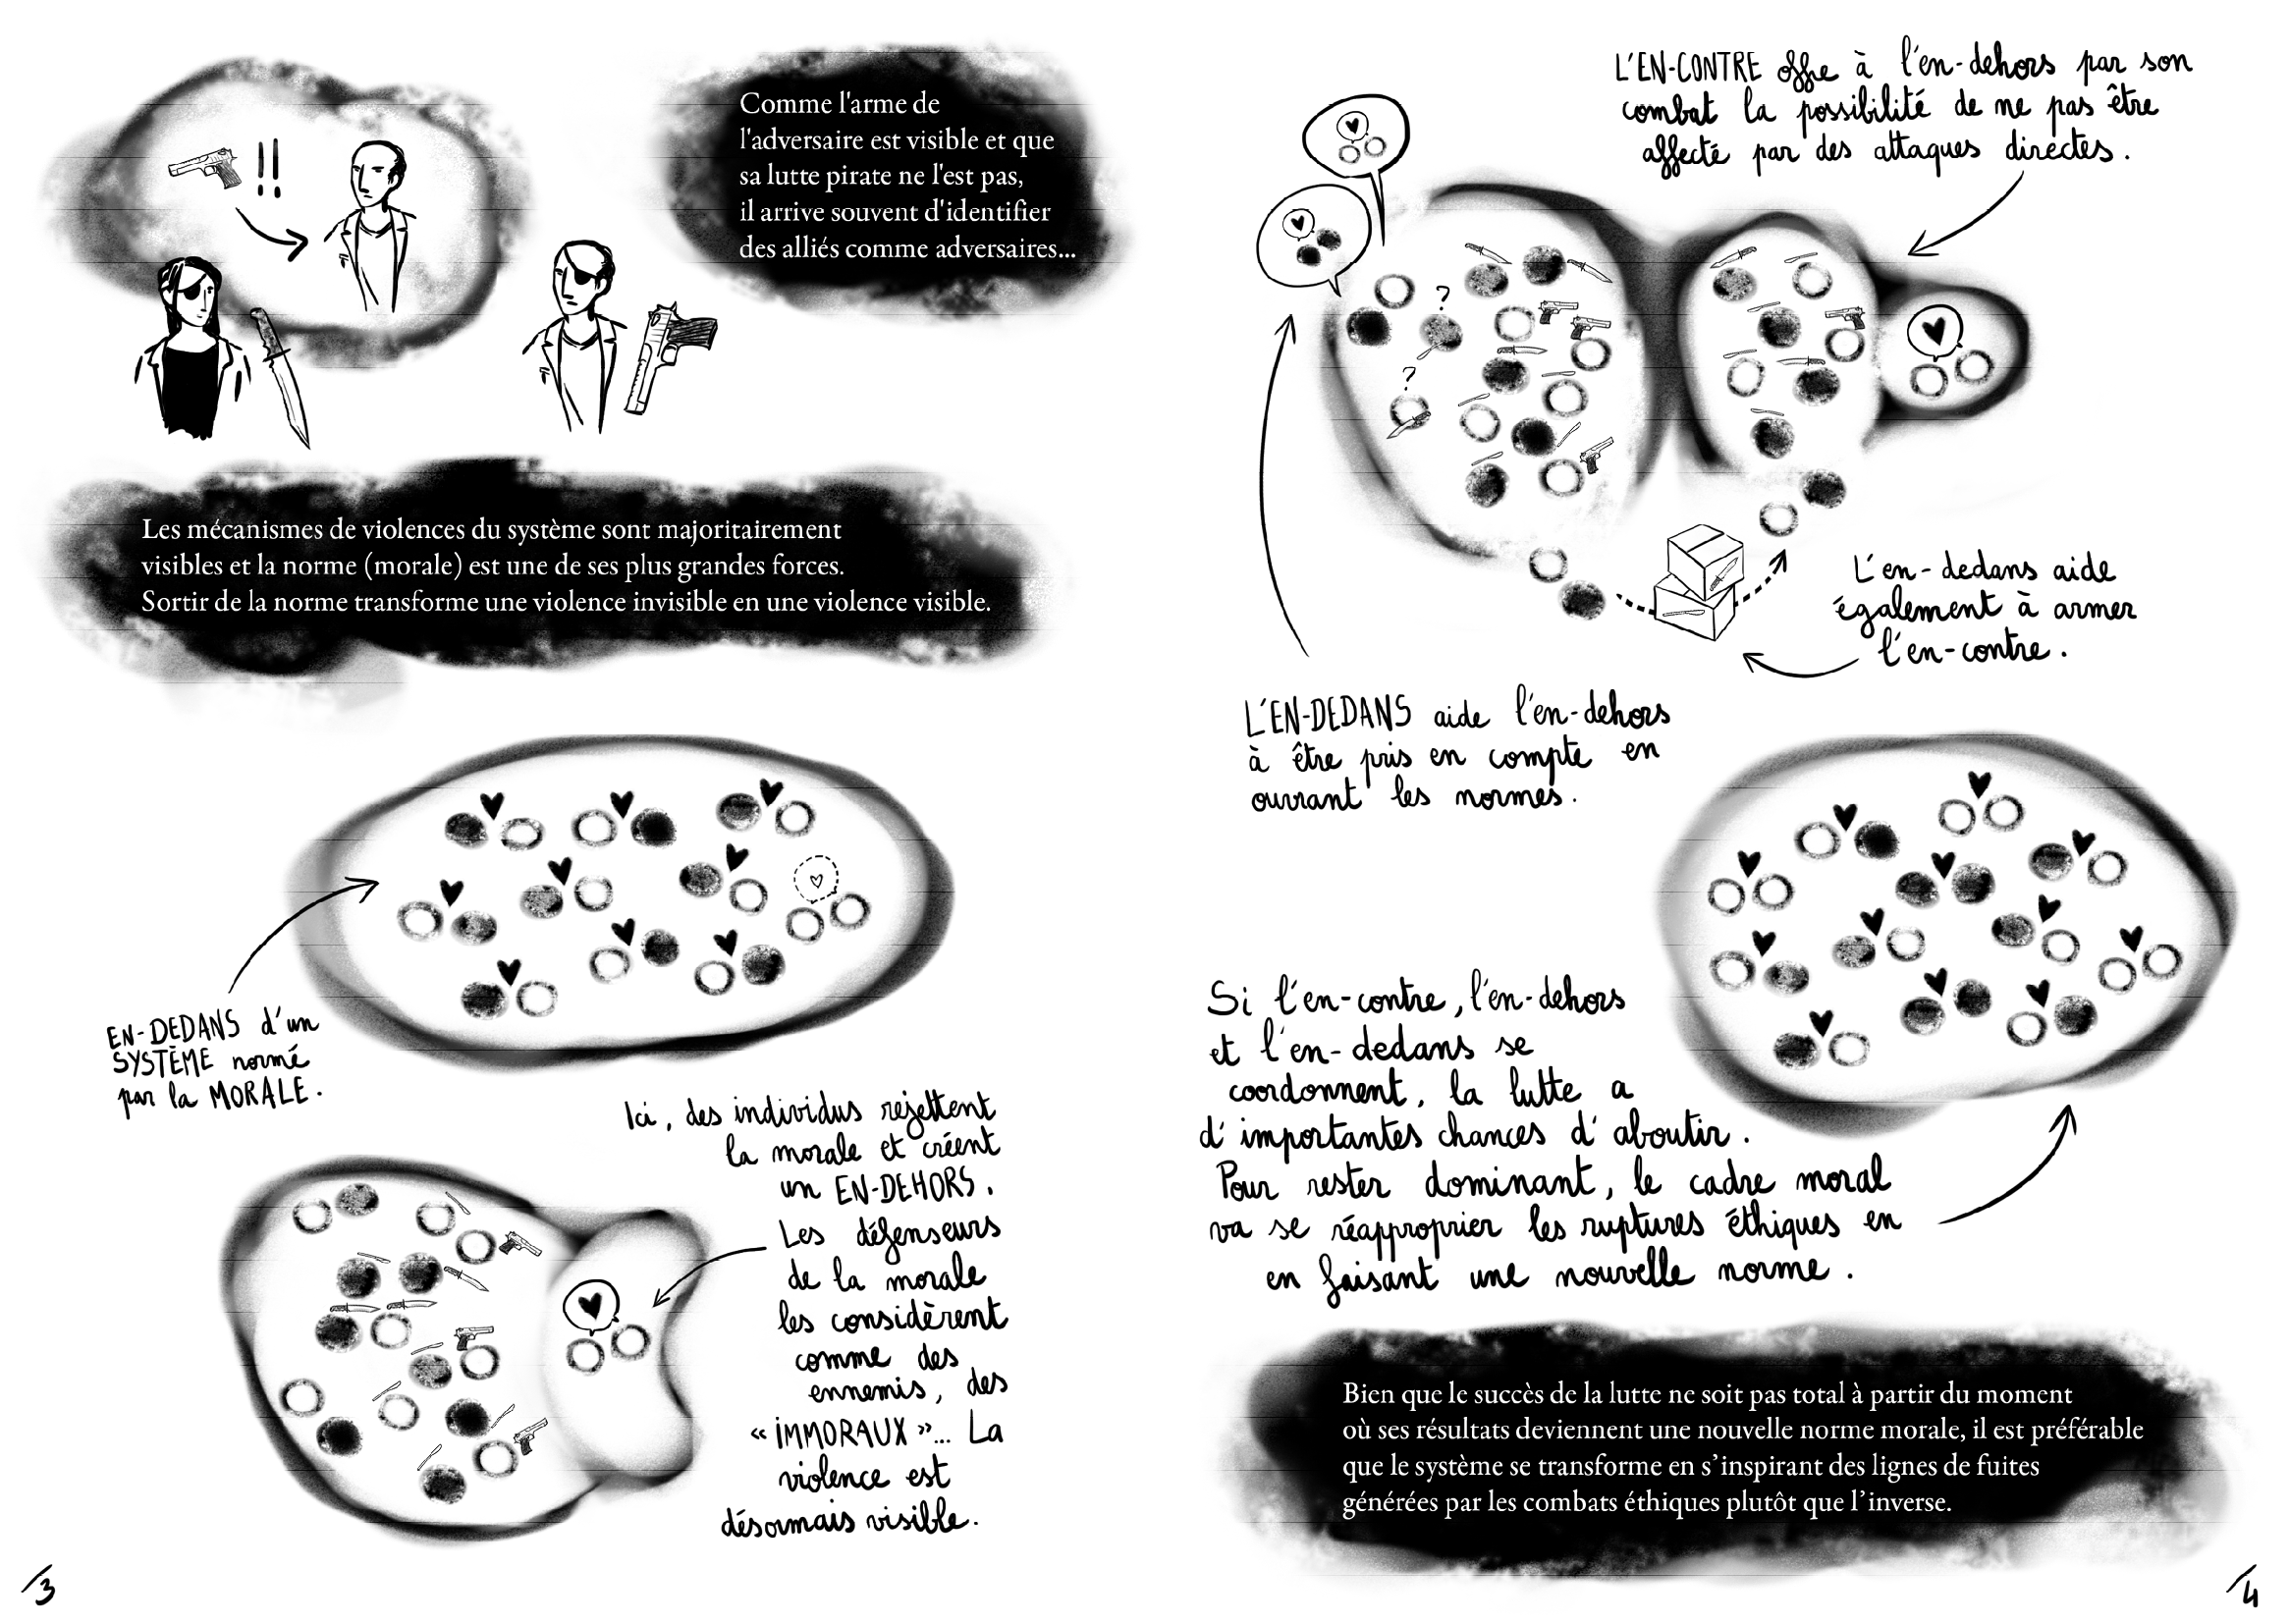 Comme l'arme de
l'adversaire est visible et que
sa lutte pirate ne l'est pas,
il arrive souvent d'identifier
des alliés comme adversaires...
!!
Les mécanismes de violences du système sont majoritairement
visibles et la norme (morale) est une de ses plus grandes forces.
Sortir de la norme transforme une violence invisible en une violence visible.
EN-DEDANS d'un
SYSTÈME normé
par la MORALE.
Ici, des individus rejettent
la morale et créent
un EN-DEHORS.
Les défenseurs
de la morale
les considèrent
comme des
ennemis, des
« IMMORAUX »... La
violence est
désormais visible.
3
L'EN-CONTRE offre à l'en-dehors par son
combat la possibilité de ne pas être
affecté par des attaques directes.
?
?
L'en-dedans aide
également à armer
l'en-contre.
L'EN-DEDANS aide l'en-dehors
à être pris en compte en
ouvrant les normes.
Si l'en-contre, l'en-dehors
et l'en-dedans se
coordonnent, la lutte a
d'importantes chances d'aboutir.
Pour rester dominant, le cadre moral
va se réapproprier les ruptures éthiques en
en faisant une nouvelle norme.
Bien que le succès de la lutte ne soit pas total à partir du moment
où ses résultats deviennent une nouvelle norme morale, il est préférable
que le système se transforme en s'inspirant des lignes de fuites
générées par les combats éthiques plutôt que l'inverse.
4